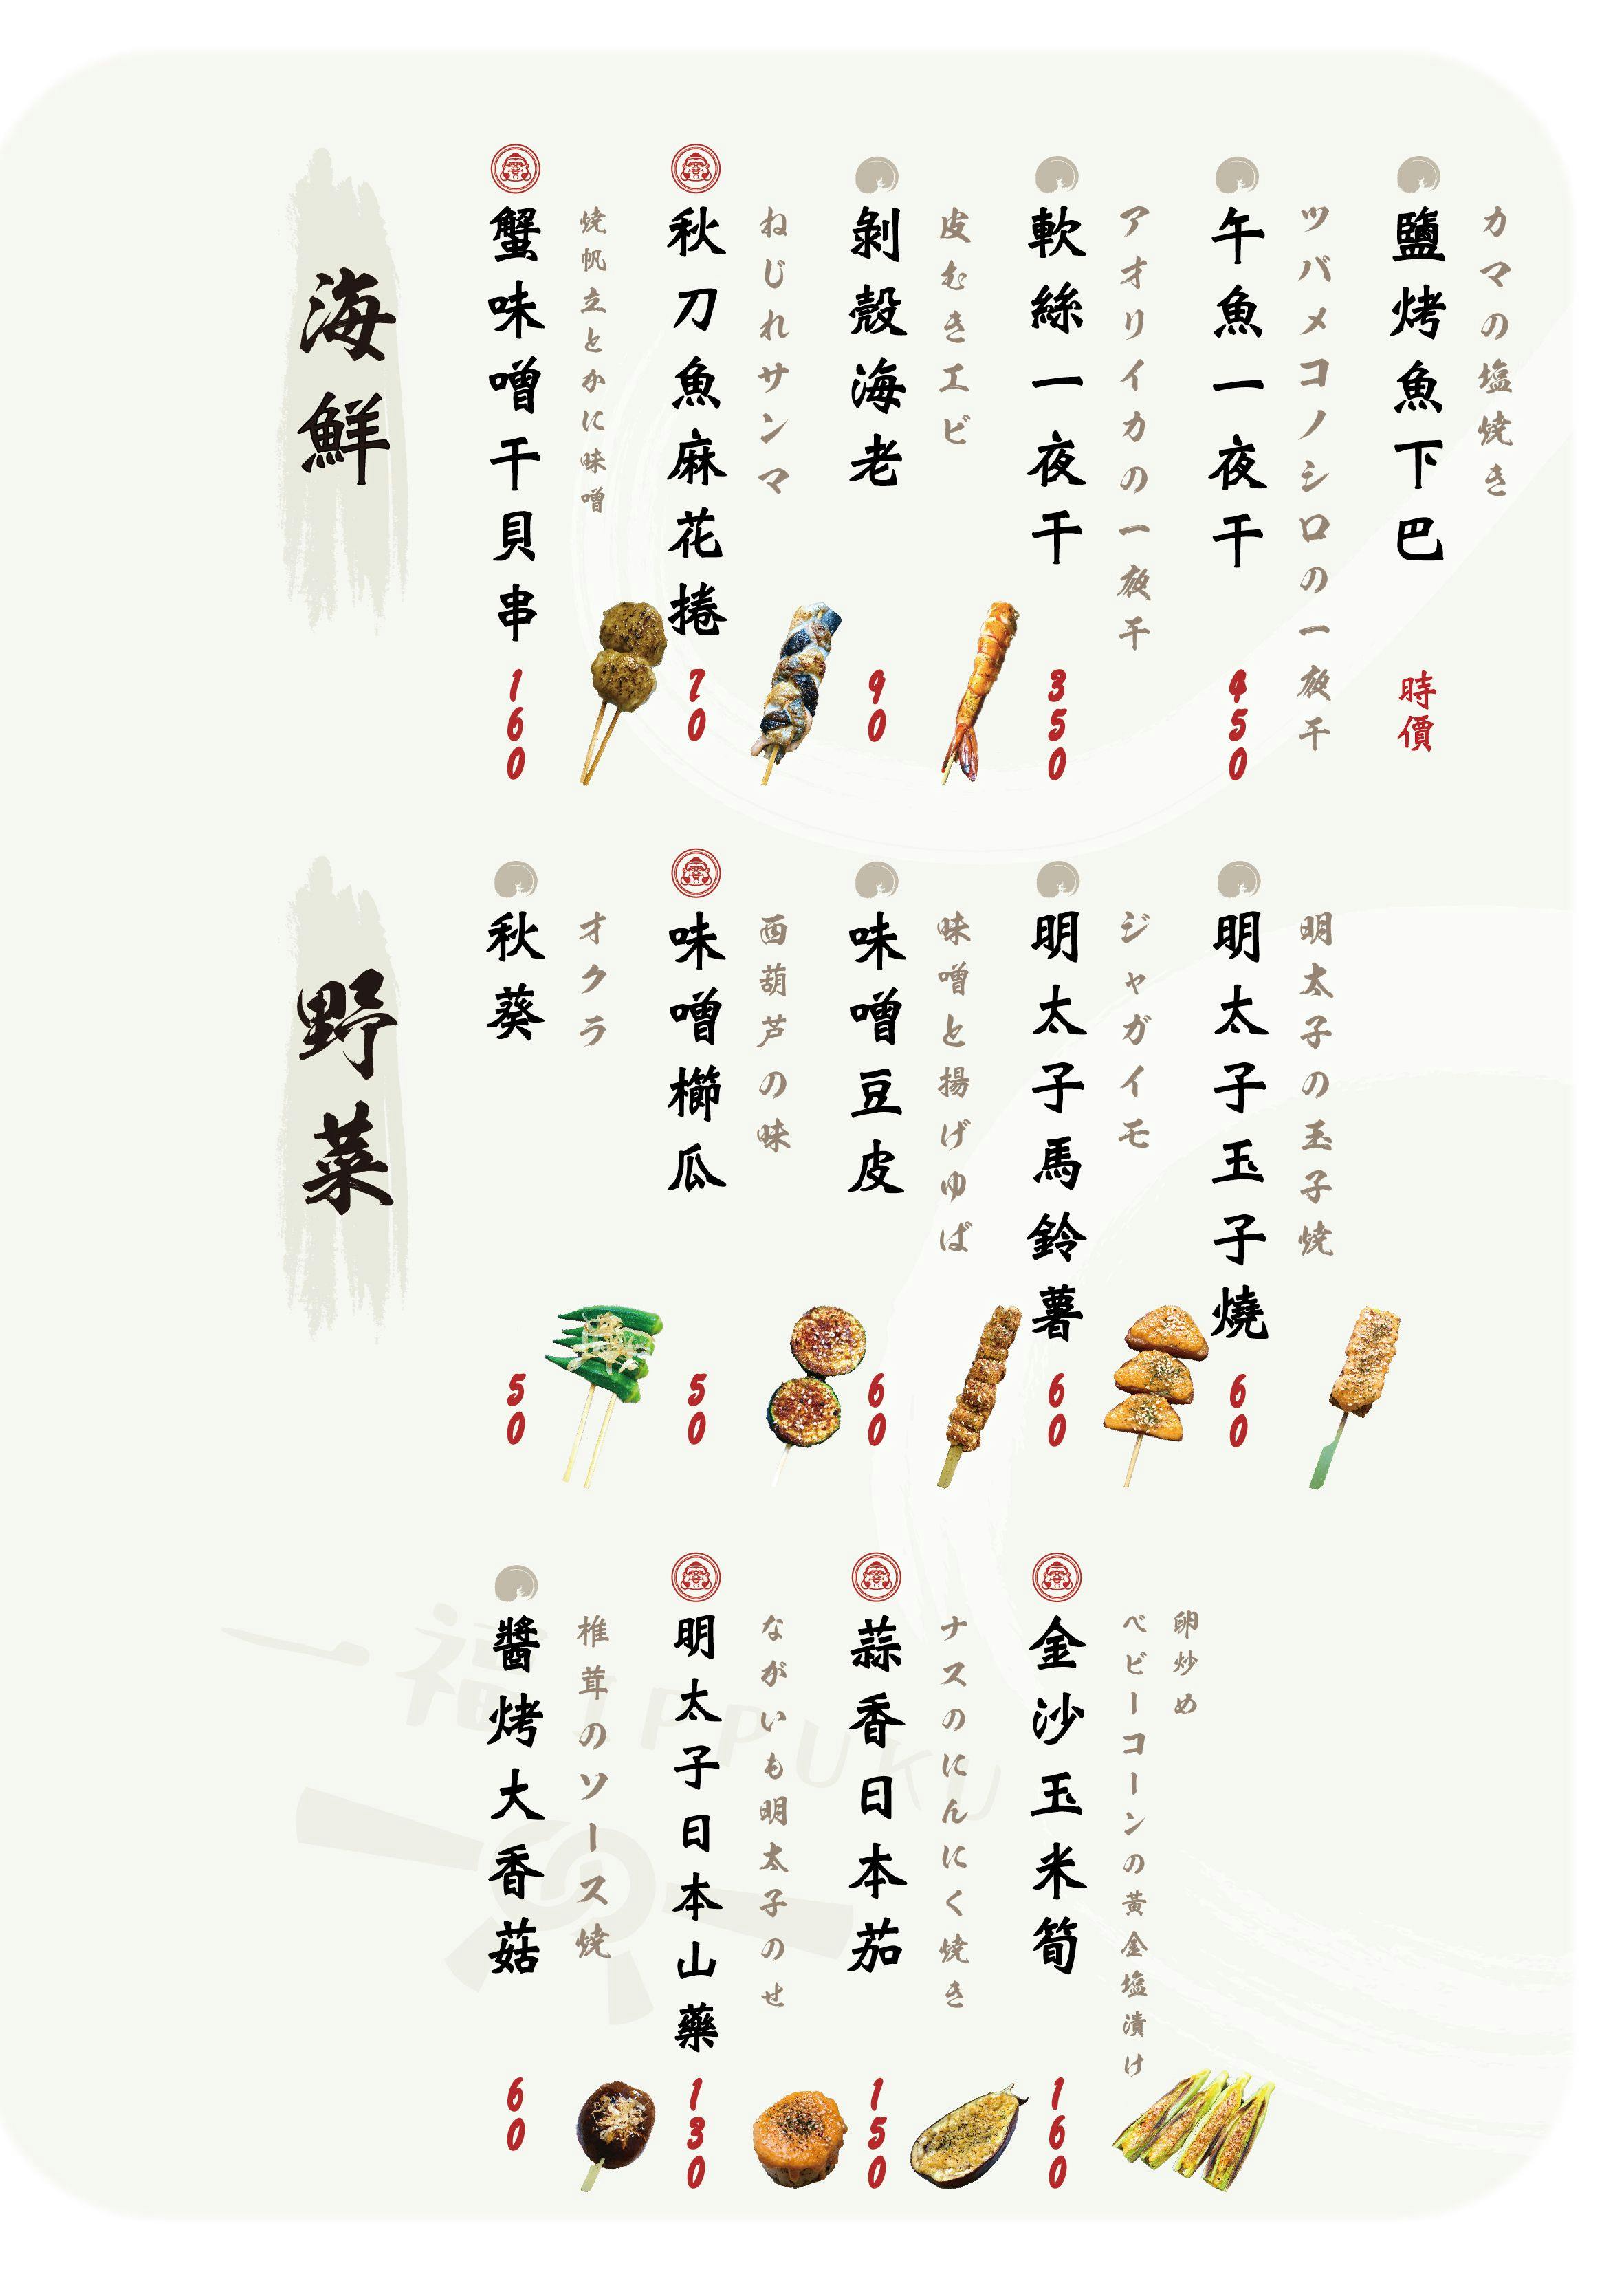 海鮮
蟹味噌干貝串
焼帆立とかに味噌
160
秋刀魚麻花捲
ねじれサンマ
70
剝殼海老
皮むきエビ
90
軟絲一夜干
アオリイカの一夜干
350
午魚一夜干
ツバメコノシロの一夜干
450
鹽烤魚下巴
カマの塩焼き
時價
野菜
秋葵
オクラ
50
味噌櫛瓜
西葫芦の味
50
味噌豆皮
味噌と揚げゆば
60
明太子馬鈴薯
ジャガイモ
60
明太子玉子燒
明太子の玉子焼
60
醬烤大香菇
椎茸のソース焼
60
明太子日本山藥
ながいも明太子のせ
130
蒜香日本茄
ナスのにんにく焼き
150
金沙玉米筍
卵炒め
ベビーコーンの黃金塩漬け
160
一福 IPPUKU